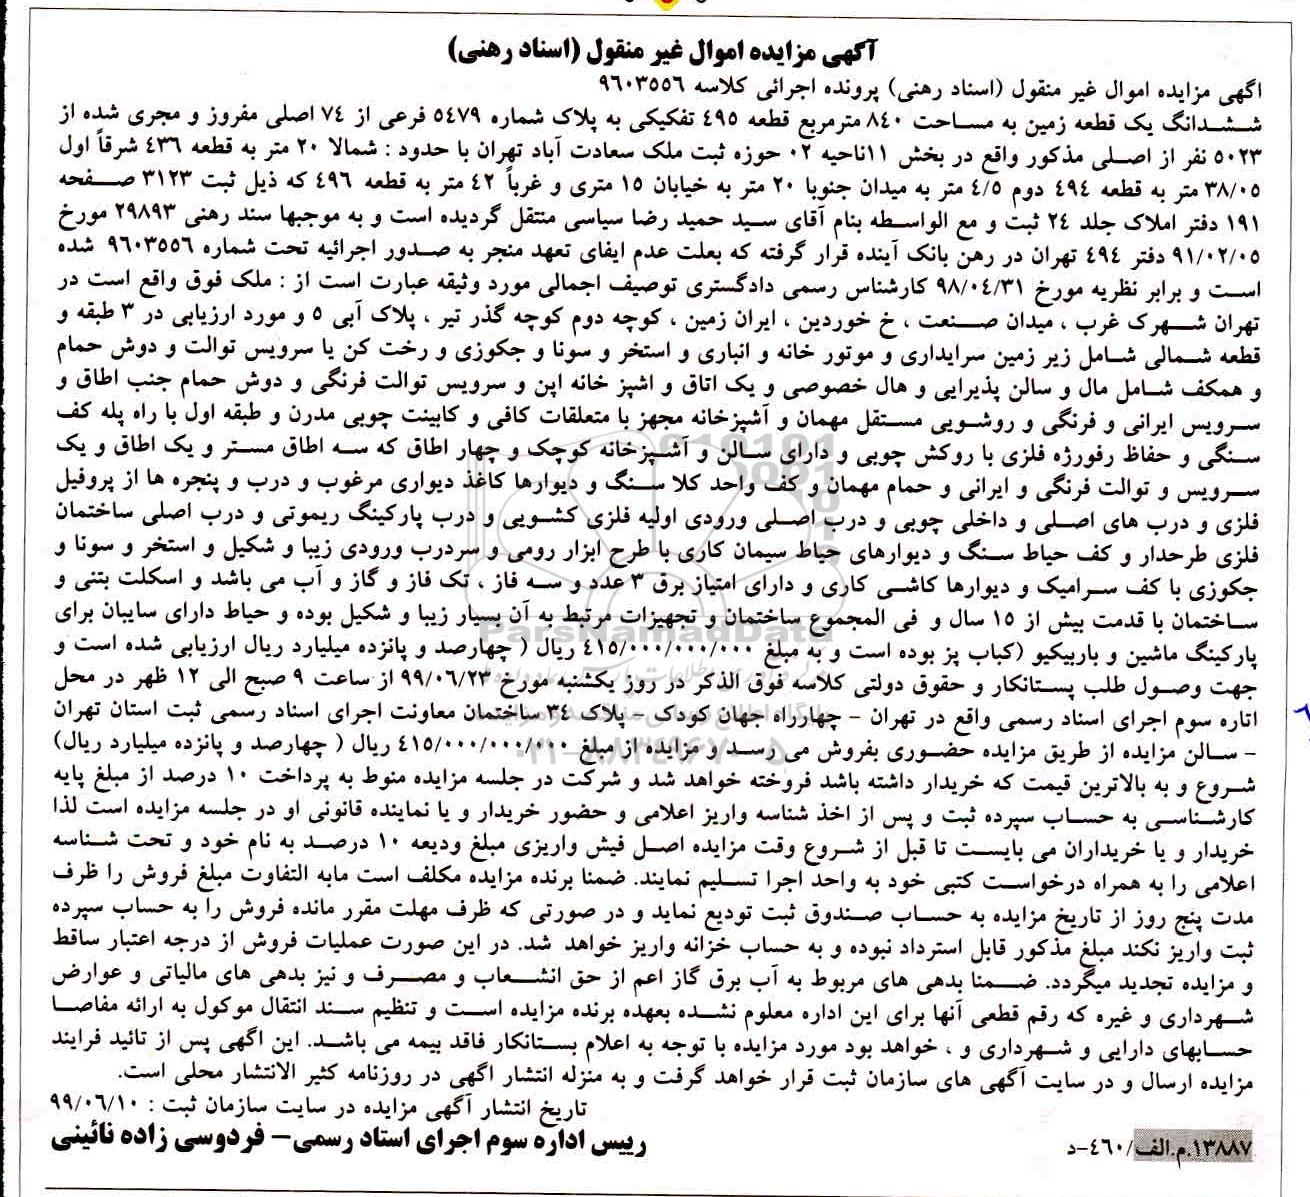 آگهی مزایده اموال غیر منقول (اسناد رهنی)
اگهی مزایده اموال غیر منقول (اسناد رهنی) پرونده اجرائی کلاسه ۹۶۰۳۵۵۶
ششدانگ یک قطعه زمین به مساحت ۸۴۰ مترمربع قطعه ۴۹۵ تفکیکی به پلاک شماره ۵۴۷۹ فرعی از ۷۴ اصلی مفروز و مجری شده از
۵۰۲۳ نفر از اصلی مذکور واقع در بخش ۱۱ناحیه ۰۲ حوزه ثبت ملک سعادت آباد تهران با حدود : شمالا ۲۰ متر به قطعه ۴۳۶ شرقاً اول
۳۸/۰۵ متر به قطعه ۴۹۴ دوم ۴/۵ متر به میدان جنوبا ۲۰ متر به خیابان ۱۵ متری و غرباً ۴۲ متر به قطعه ۴۹۶ که ذیل ثبت ۳۱۲۳ صفحه
۱۹۱ دفتر املاک جلد ۲۴ ثبت و مع الواسطه بنام آقای سید حمید رضا سیاسی منتقل گردیده است و به موجبها سند رهنی ۲۹۸۹۳ مورخ
۹۱/۰۲/۰۵ دفتر ۴۹۴ تهران در رهن بانک آینده قرار گرفته که بعلت عدم ایفای تعهد منجر به صدور اجرائیه تحت شماره ۹۶۰۳۵۵۶ شده
است و برابر نظریه مورخ ۹۸/۰۴/۳۱ کارشناس رسمی دادگستری توصیف اجمالی مورد وثیقه عبارت است از : ملک فوق واقع است در
تهران شهرک غرب ، میدان صنعت ، خ خوردین ، ایران زمین ، کوچه دوم کوچه گذر تیر ، پلاک آبی ۵ و مورد ارزیابی در ۳ طبقه و
قطعه شمالی شامل زیر زمین سرایداری و موتور خانه و انباری و استخر و سونا و جکوزی و رخت کن یا سرویس توالت و دوش حمام
و همکف شامل مال و سالن پذیرایی و هال خصوصی و یک اتاق و اشپز خانه اپن و سرویس توالت فرنگی و دوش حمام جنب اطاق و
سرویس ایرانی و فرنگی و روشویی مستقل مهمان و آشپزخانه مجهز با متعلقات کافی و کابینت چوبی مدرن و طبقه اول با راه پله کف
سنگی و حفاظ رفورژه فلزی با روکش چوبی و دارای سالن و آشپزخانه کوچک و چهار اطاق که سه اطاق مستر و یک اطاق و یک
سرویس و توالت فرنگی و ایرانی و حمام مهمان و کف واحد کلا سنگ و دیوارها کاغذ دیواری مرغوب و درب و پنجره ها از پروفیل
فلزی و درب های اصلی و داخلی چوبی و درب اصلی ورودی اولیه فلزی کشویی و درب پارکینگ ریموتی و درب اصلی ساختمان
فلزی طرحدار و کف حیاط سنگ و دیوارهای حیاط سیمان کاری با طرح ابزار رومی و سردرب ورودی زیبا و شکیل و استخر و سونا و
جکوزی با کف سرامیک و دیوارها کاشی کاری و دارای امتیاز برق ۳ عدد و سه فاز ، تک فاز و گاز و آب می باشد و اسکلت بتنی و
ساختمان با قدمت بیش از ۱۵ سال و فی المجموع ساختمان و تجهیزات مرتبط به آن بسیار زیبا و شکیل بوده و حیاط دارای سایبان برای
پارکینگ ماشین و باربیکیو (کباب پز بوده است و به مبلغ ۴۱۵/۰۰۰/۰۰۰/۰۰۰ ریال ( چهارصد و پانزده میلیارد ریال ارزیابی شده است و
جهت وصول طلب پستانکار و حقوق دولتی کلاسه فوق الذکر در روز یکشنبه مورخ ۹۹/۰۶/۲۳ از ساعت ۹ صبح الی ۱۲ ظهر در محل
اتاره سوم اجرای اسناد رسمی واقع در تهران - چهارراه جهان کودک - پلاک ۳۴ ساختمان معاونت اجرای اسناد رسمی ثبت استان تهران
- سالن مزایده از طریق مزایده حضوری بفروش می رسد و مزایده از مبلغ ۴۱۵/۰۰۰/۰۰۰/۰۰۰ ریال ( چهارصد و پانزده میلیارد ریال)
شروع و به بالاترین قیمت که خریدار داشته باشد فروخته خواهد شد و شرکت در جلسه مزایده منوط به پرداخت ۱۰ درصد از مبلغ پایه
کارشناسی به حساب سپرده ثبت و پس از اخذ شناسه واریز اعلامی و حضور خریدار و یا نماینده قانونی او در جلسه مزایده است لذا
خریدار و یا خریداران می بایست تا قبل از شروع وقت مزایده اصل فیش واریزی مبلغ ودیعه ۱۰ درصد به نام خود و تحت شناسه
اعلامی را به همراه درخواست کتبی خود به واحد اجرا تسلیم نمایند. ضمنا برنده مزایده مکلف است مابه التفاوت مبلغ فروش را ظرف
مدت پنج روز از تاریخ مزایده به حساب صندوق ثبت تودیع نماید و در صورتی که ظرف مهلت مقرر مانده فروش را به حساب سپرده
ثبت واریز نکند مبلغ مذکور قابل استرداد نبوده و به حساب خزانه واریز خواهد شد. در این صورت عملیات فروش از درجه اعتبار ساقط
و مزایده تجدید میگردد. ضمنا بدهی های مربوط به آب برق گاز اعم از حق انشعاب و مصرف و نیز بدهی های مالیاتی و عوارض
شهرداری و غیره که رقم قطعی آنها برای این اداره معلوم نشده بعهده برنده مزایده است و تنظیم سند انتقال موکول به ارائه مفاصا
حسابهای دارایی و شهرداری و ، خواهد بود مورد مزایده با توجه به اعلام بستانکار فاقد بیمه می باشد. این اگهی پس از تائید فرایند
مزایده ارسال و در سایت آگهی های سازمان ثبت قرار خواهد گرفت و به منزله انتشار اگهی در روزنامه کثیر الانتشار محلی است.
تاریخ انتشار آگهی مزایده در سایت سازمان ثبت : ۹۹/۰۶/۱۰
رییس اداره سوم اجرای استاد رسمی- فردوسی زاده نائینی
۱۳۸۸۷.م.الف/۴۶۰-د
ParsNamadData